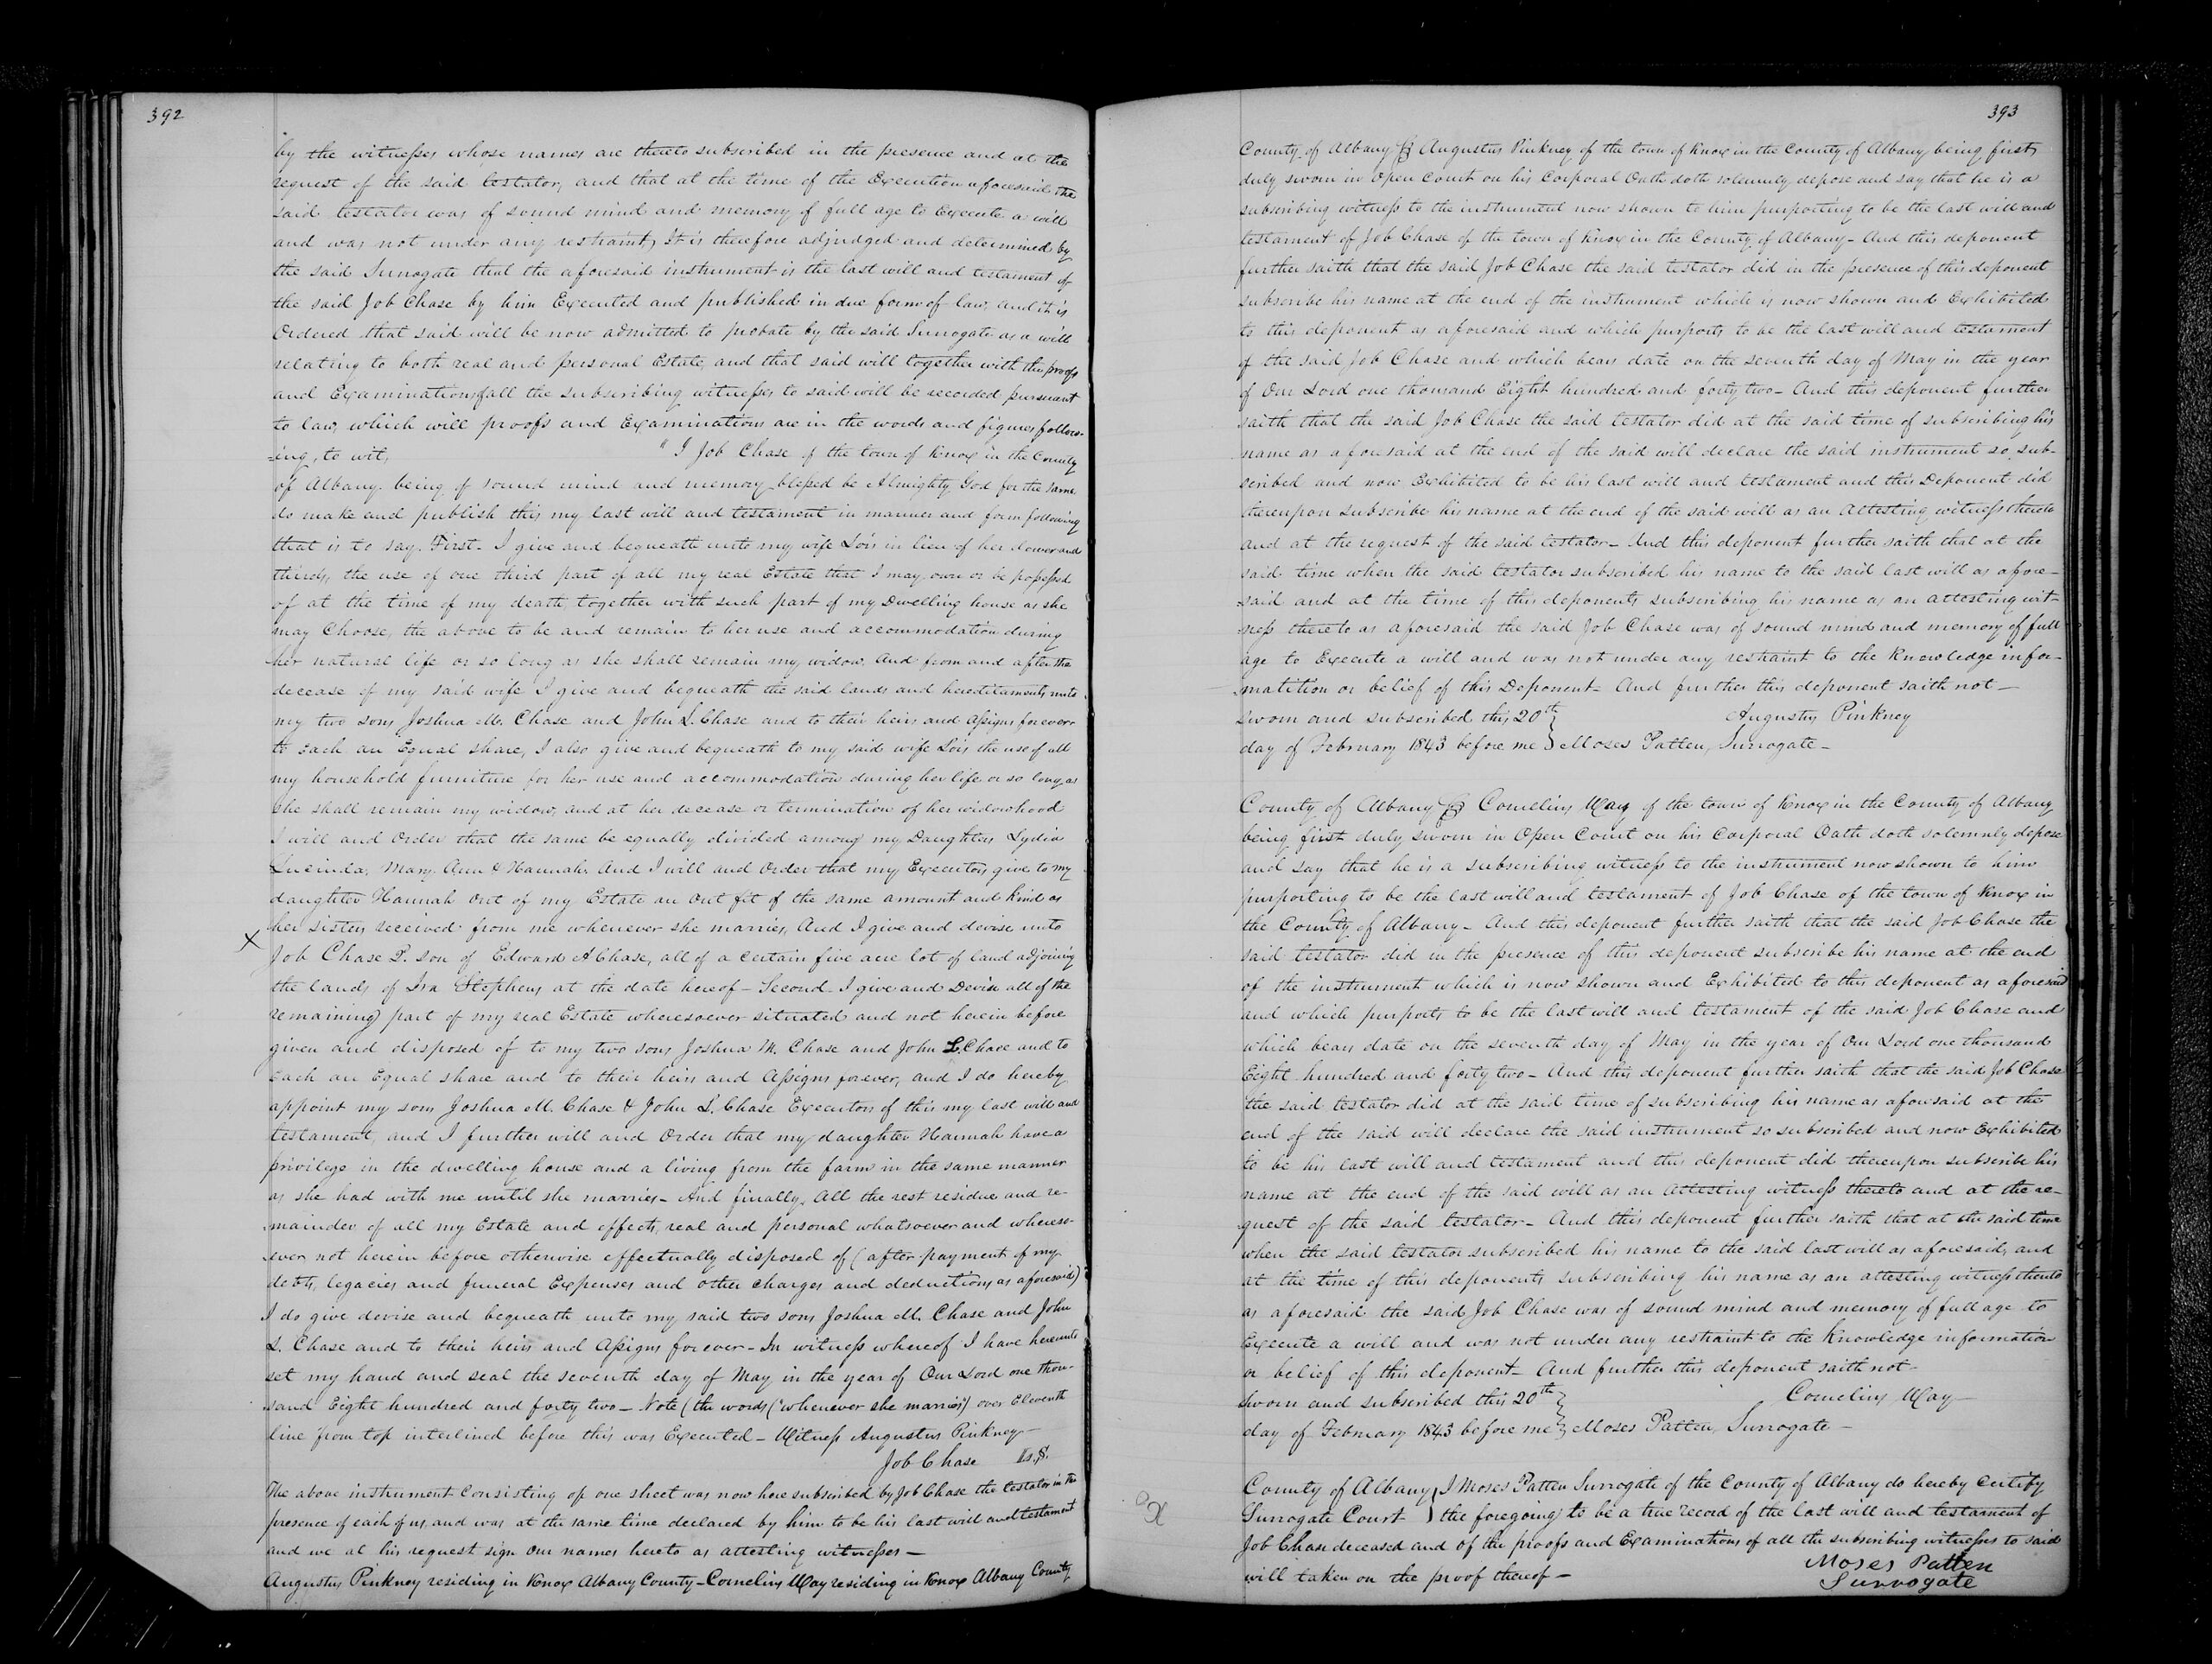 392
by the witnesses whose names are thereto subscribed in the presence and at the
request of the said testator, and that at the time of the Execution aforesaid the
said testator was of sound mind and memory of full age to Execute a will
and was not under any restraint, It is therefore adjudged and determined by
the said Surrogate that the aforesaid instrument is the last will and testament of
the said Job Chase by him Executed and published in due form of law, and it is
Ordered that said will be now admitted to probate by the said Surrogate as a will
relating to both real and personal Estate, and that said will together with the proofs
and Examinations of all the subscribing witnesses to said will be recorded pursuant
to law, which will proofs and Examinations are in the words and figures follow-
=ing, to wit, "I Job Chase of the town of Knox in the County
of Albany being of sound mind and memory blessed be Almighty God for the same
do make and publish this my last will and testament in manner and form following
that is to say. First- I give and bequeath unto my wife Lois in lieu of her dower and
thirds, the use of one third part of all my real Estate that I may own or be possessed
of at the time of my death, together with such part of my Dwelling house as she
may Choose, the above to be and remain to her use and accommodation during
her natural life or so long as she shall remain my widow. And from and after the
decease of my said wife I give and bequeath the said lands and hereditaments unto
my two sons Joshua M. Chase and John L. Chase and to their heirs and Assigns forever
to each an Equal share, I also give and bequeath to my said wife Lois the use of all
my household furniture for her use and accommodation during her life or so long as
she shall remain my widow, and at her decease or termination of her widowhood
I will and Order that the same be equally divided among my Daughters Lydia
Lucinda, Mary Ann & Hannah. And I will and Order that my Executors give to my
daughter Hannah out of my Estate an out fit of the same amount and kind as
her sisters received from me whenever she marries, And I give and devise unto
X Job Chase 2. son of Edward A Chase, all of a certain five acre lot of land adjoining
the lands of Ira Stephens at the date hereof - Second. I give and Devise all of the
remaining part of my real Estate wheresoever situated and not herein before
given and disposed of to my two sons Joshua M. Chase and John L. Chase and to
each an Equal share and to their heirs and Assigns forever, and I do hereby
appoint my sons Joshua M. Chase & John L. Chase Executors of this my last will and
testament, and I further will and Order that my daughter Hannah have a
privilege in the dwelling house and a living from the farm in the same manner
as she had with me until she marries- And finally. All the rest residue and re-
mainder of all my Estate and effects, real and personal whatsoever and whereso-
ever not herein before otherwise effectually disposed of (after payment of my
debts, legacies and funeral Expenses and other charges and deductions as aforesaid)
I do give devise and bequeath unto my said two sons Joshua M. Chase and John
L. Chase and to their heirs and Assigns forever - In witness whereof I have hereunto
set my hand and seal the seventh day of May in the year of Our Lord one thou-
sand Eight hundred and forty two - Note (the words ("whenever she marries") over Eleventh
line from top interlined before this was Executed - Witness Augustus Pinkney
Job Chase L.S.
The above instrument consisting of one sheet was now here subscribed by Job Chase the testator in the
presence of each of us, and was at the same time declared by him to be his last will and testament
and we at his request sign our names hereto as attesting witnesses -
Augustus Pinkney residing in Knox Albany County - Cornelius Way residing in Knox Albany County
393
County of Albany ss Augustus Pinkney of the town of Knox in the County of Albany being first
duly sworn in Open Court on his Corporal Oath doth solemnly depose and say that he is a
subscribing witness to the instrument now shown to him purporting to be the last will and
testament of Job Chase of the town of Knox in the County of Albany - And this deponent
further saith that the said Job Chase the said testator did in the presence of this deponent
subscribe his name at the end of the instrument which is now shown and Exhibited
to this deponent as aforesaid and which purports to be the last will and testament
of the said Job Chase and which bears date on the seventh day of May in the year
of Our Lord one thousand Eight hundred and forty two - And this deponent further
saith that the said Job Chase the said testator did at the said time of subscribing his
name as aforesaid at the end of the said will declare the said instrument so sub-
scribed and now Exhibited to be his last will and testament and this Deponent did
thereupon subscribe his name at the end of the said will as an Attesting witness thereto
and at the request of the said testator - And this deponent further saith that at the
said time when the said testator subscribed his name to the said last will as afore-
said and at the time of this deponents subscribing his name as an attesting wit-
ness thereto as aforesaid the said Job Chase was of sound mind and memory of full
age to Execute a will and was not under any restraint to the Knowledge infor-
matition or belief of this Deponent - And further this deponent saith not -
Sworn and subscribed this 20th } Augustus Pinkney
day of February 1843 before me } Moses Patten, Surrogate -
County of Albany ss Cornelius Way of the town of Knox in the County of Albany
being first duly sworn in Open Court on his Corporal Oath doth solemnly depose
and say that he is a subscribing witness to the instrument now shown to him
purporting to be the last will and testament of Job Chase of the town of Knox in
the County of Albany - And this deponent further saith that the said Job Chase the
said testator did in the presence of this deponent subscribe his name at the end
of the instrument which is now shown and Exhibited to this deponent as aforesaid
and which purports to be the last will and testament of the said Job Chase and
which bears date on the seventh day of May in the year of Our Lord one thousand
Eight hundred and forty two - And this deponent further saith that the said Job Chase
the said testator did at the said time of subscribing his name as aforesaid at the
end of the said will declare the said instrument so subscribed and now Exhibited
to be his last will and testament and this deponent did thereupon subscribe his
name at the end of the said will as an Attesting witness thereto and at the re-
quest of the said testator - And this deponent further saith that at the said time
when the said testator subscribed his name to the said last will as aforesaid, and
at the time of this deponents subscribing his name as an attesting witness thereto
as aforesaid the said Job Chase was of sound mind and memory of full age to
Execute a will and was not under any restraint to the Knowledge information
or belief of this deponent - And further this deponent saith not -
Sworn and subscribed this 20th } Cornelius Way
day of February 1843 before me } Moses Patten, Surrogate -
County of Albany } I Moses Patten Surrogate of the County of Albany do hereby Certify
Surrogate Court } the foregoing to be a true record of the last will and testament of
Job Chase deceased and of the proofs and Examinations of all the subscribing witnesses to said
will taken on the proof thereof -
Moses Patten
Surrogate